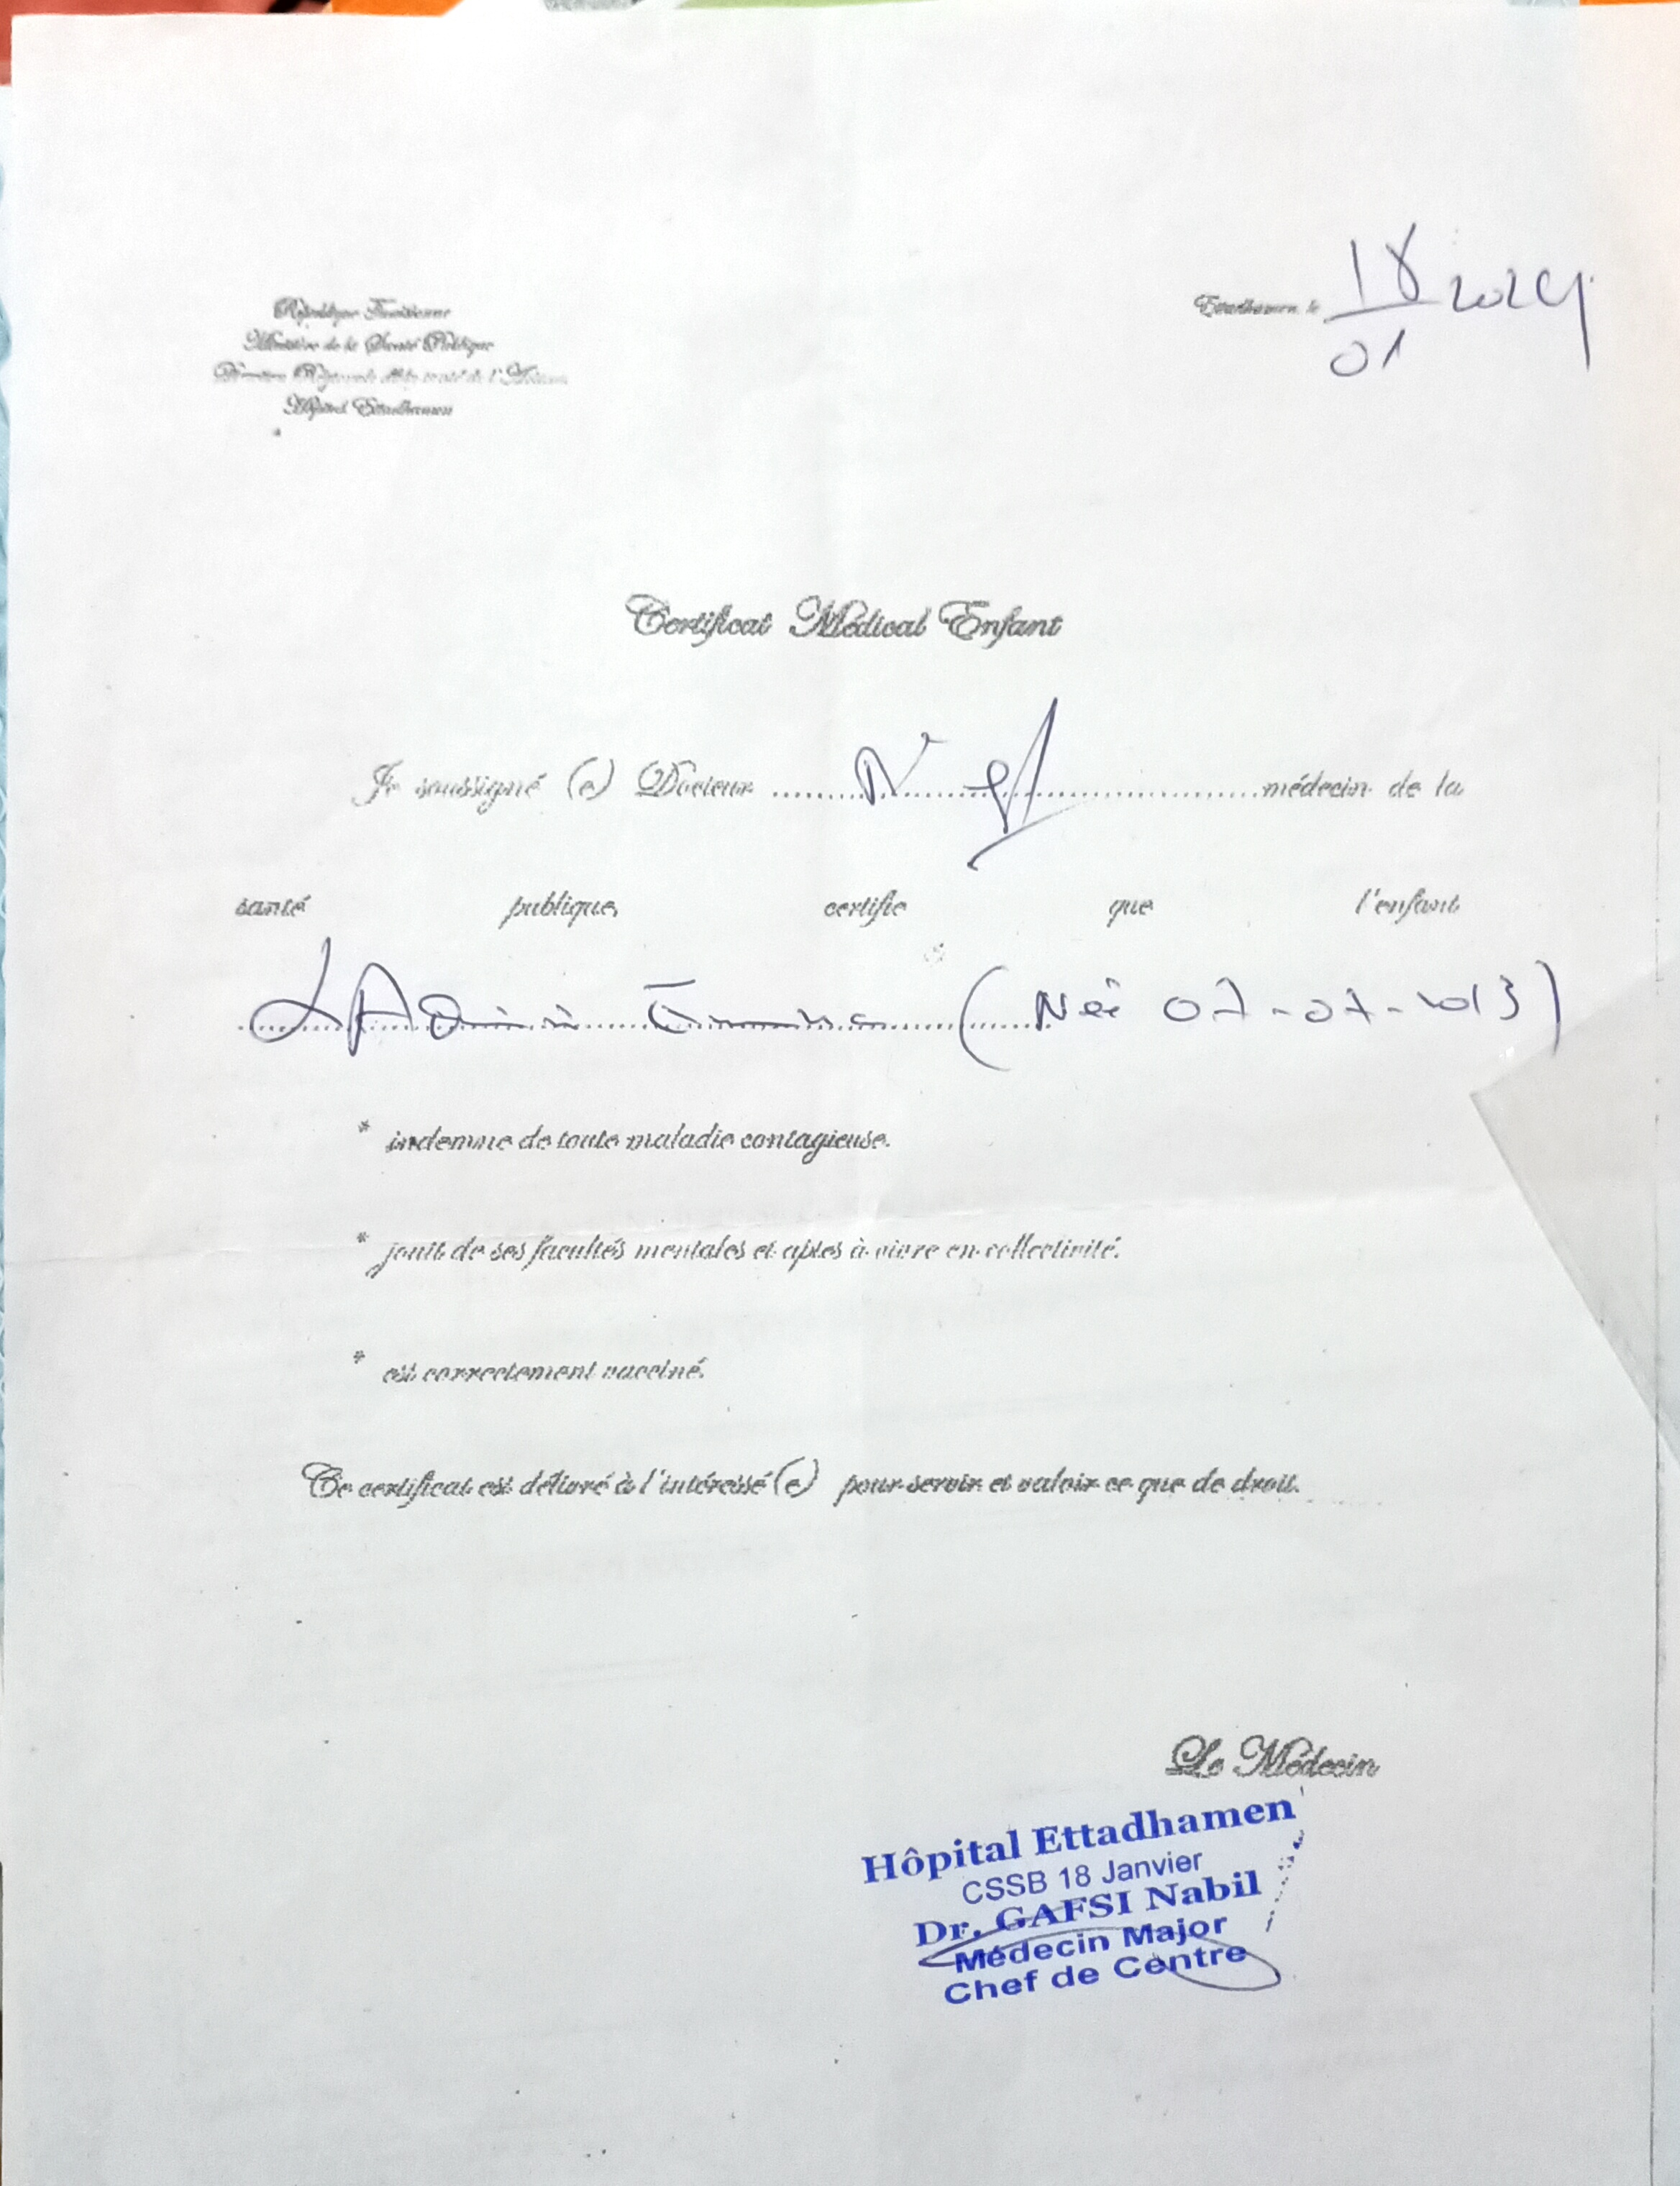 République Tunisienne
Ministère de la Santé Publique
Direction Régionale de la santé de l'Ariana
Hôpital Ettadhamen
Ettadhamen le 18/01 2024
Certificat Médical Enfant
Je soussigné (e) Docteur ............ médecin de la
santé publique, certifie que l'enfant
(Née 07-07-2013)
* indemne de toute maladie contagieuse.
* jouit de ses facultés mentales et aptes à vivre en collectivité.
* est correctement vacciné.
Ce certificat est délivré à l'intéressé (e) pour servir et valoir ce que de droit.
Le Médecin
Hôpital Ettadhamen
CSSB 18 Janvier
Dr. GAFSI Nabil
Médecin Major
Chef de Centre